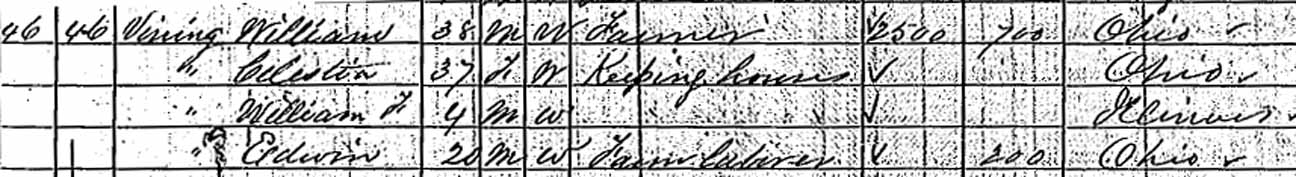 46 46 Vining William 38 M W Farmer 2500 700 Ohio
" Celestia 37 F W Keeping house Ohio
" William F 4 M W Illinois
" Edwin 20 M W Farm Laborer 200 Ohio